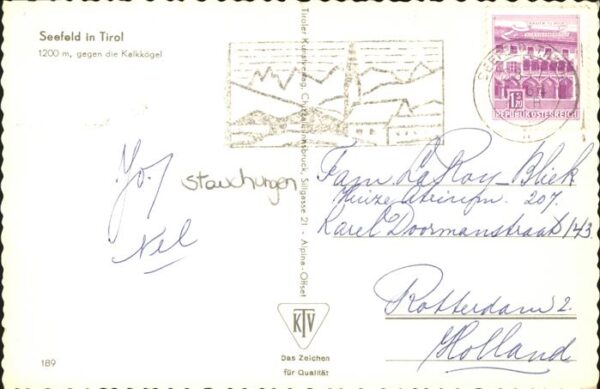 Seefeld in Tirol
1200 m, gegen die Kalkkögel
Jo.
Nel
stauchungen
Tiroler Kunstverlag, Chizzali, Innsbruck, Sillgasse 21 - Alpina-Offset
REPUBLIK ÖSTERREICH
Fam. La Roy-Bliek
Huize 207.
Karel Doormanstraat 143
Rotterdam 2.
Holland
KTV
Das Zeichen
für Qualität
189